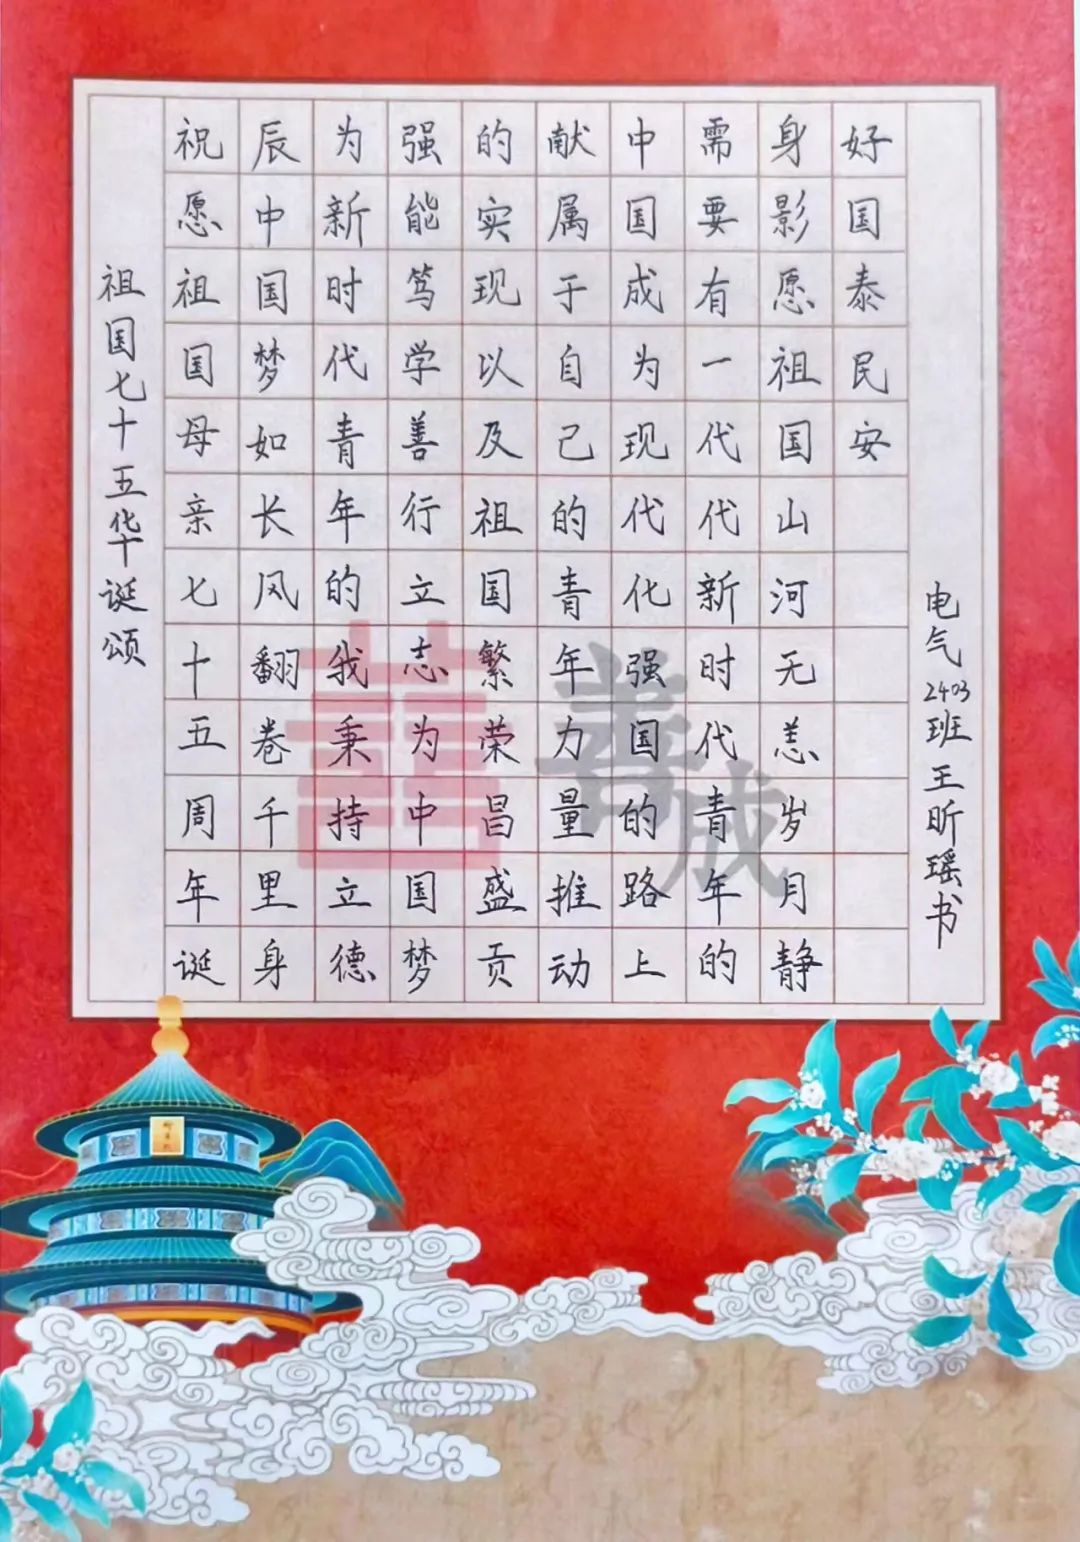 祖国七十五华诞颂
祝愿祖国母亲七十五周年诞
辰中国梦如长风翻卷千里身
为新时代青年的我秉持立德
强能笃学善行立志为中国梦
的实现以及祖国繁荣昌盛贡
献属于自己的青年力量推动
中国成为现代化强国的路上
需要有一代代新时代青年的
身影愿祖国山河无恙岁月静
好国泰民安
电气2403班王昕瑶书
善成